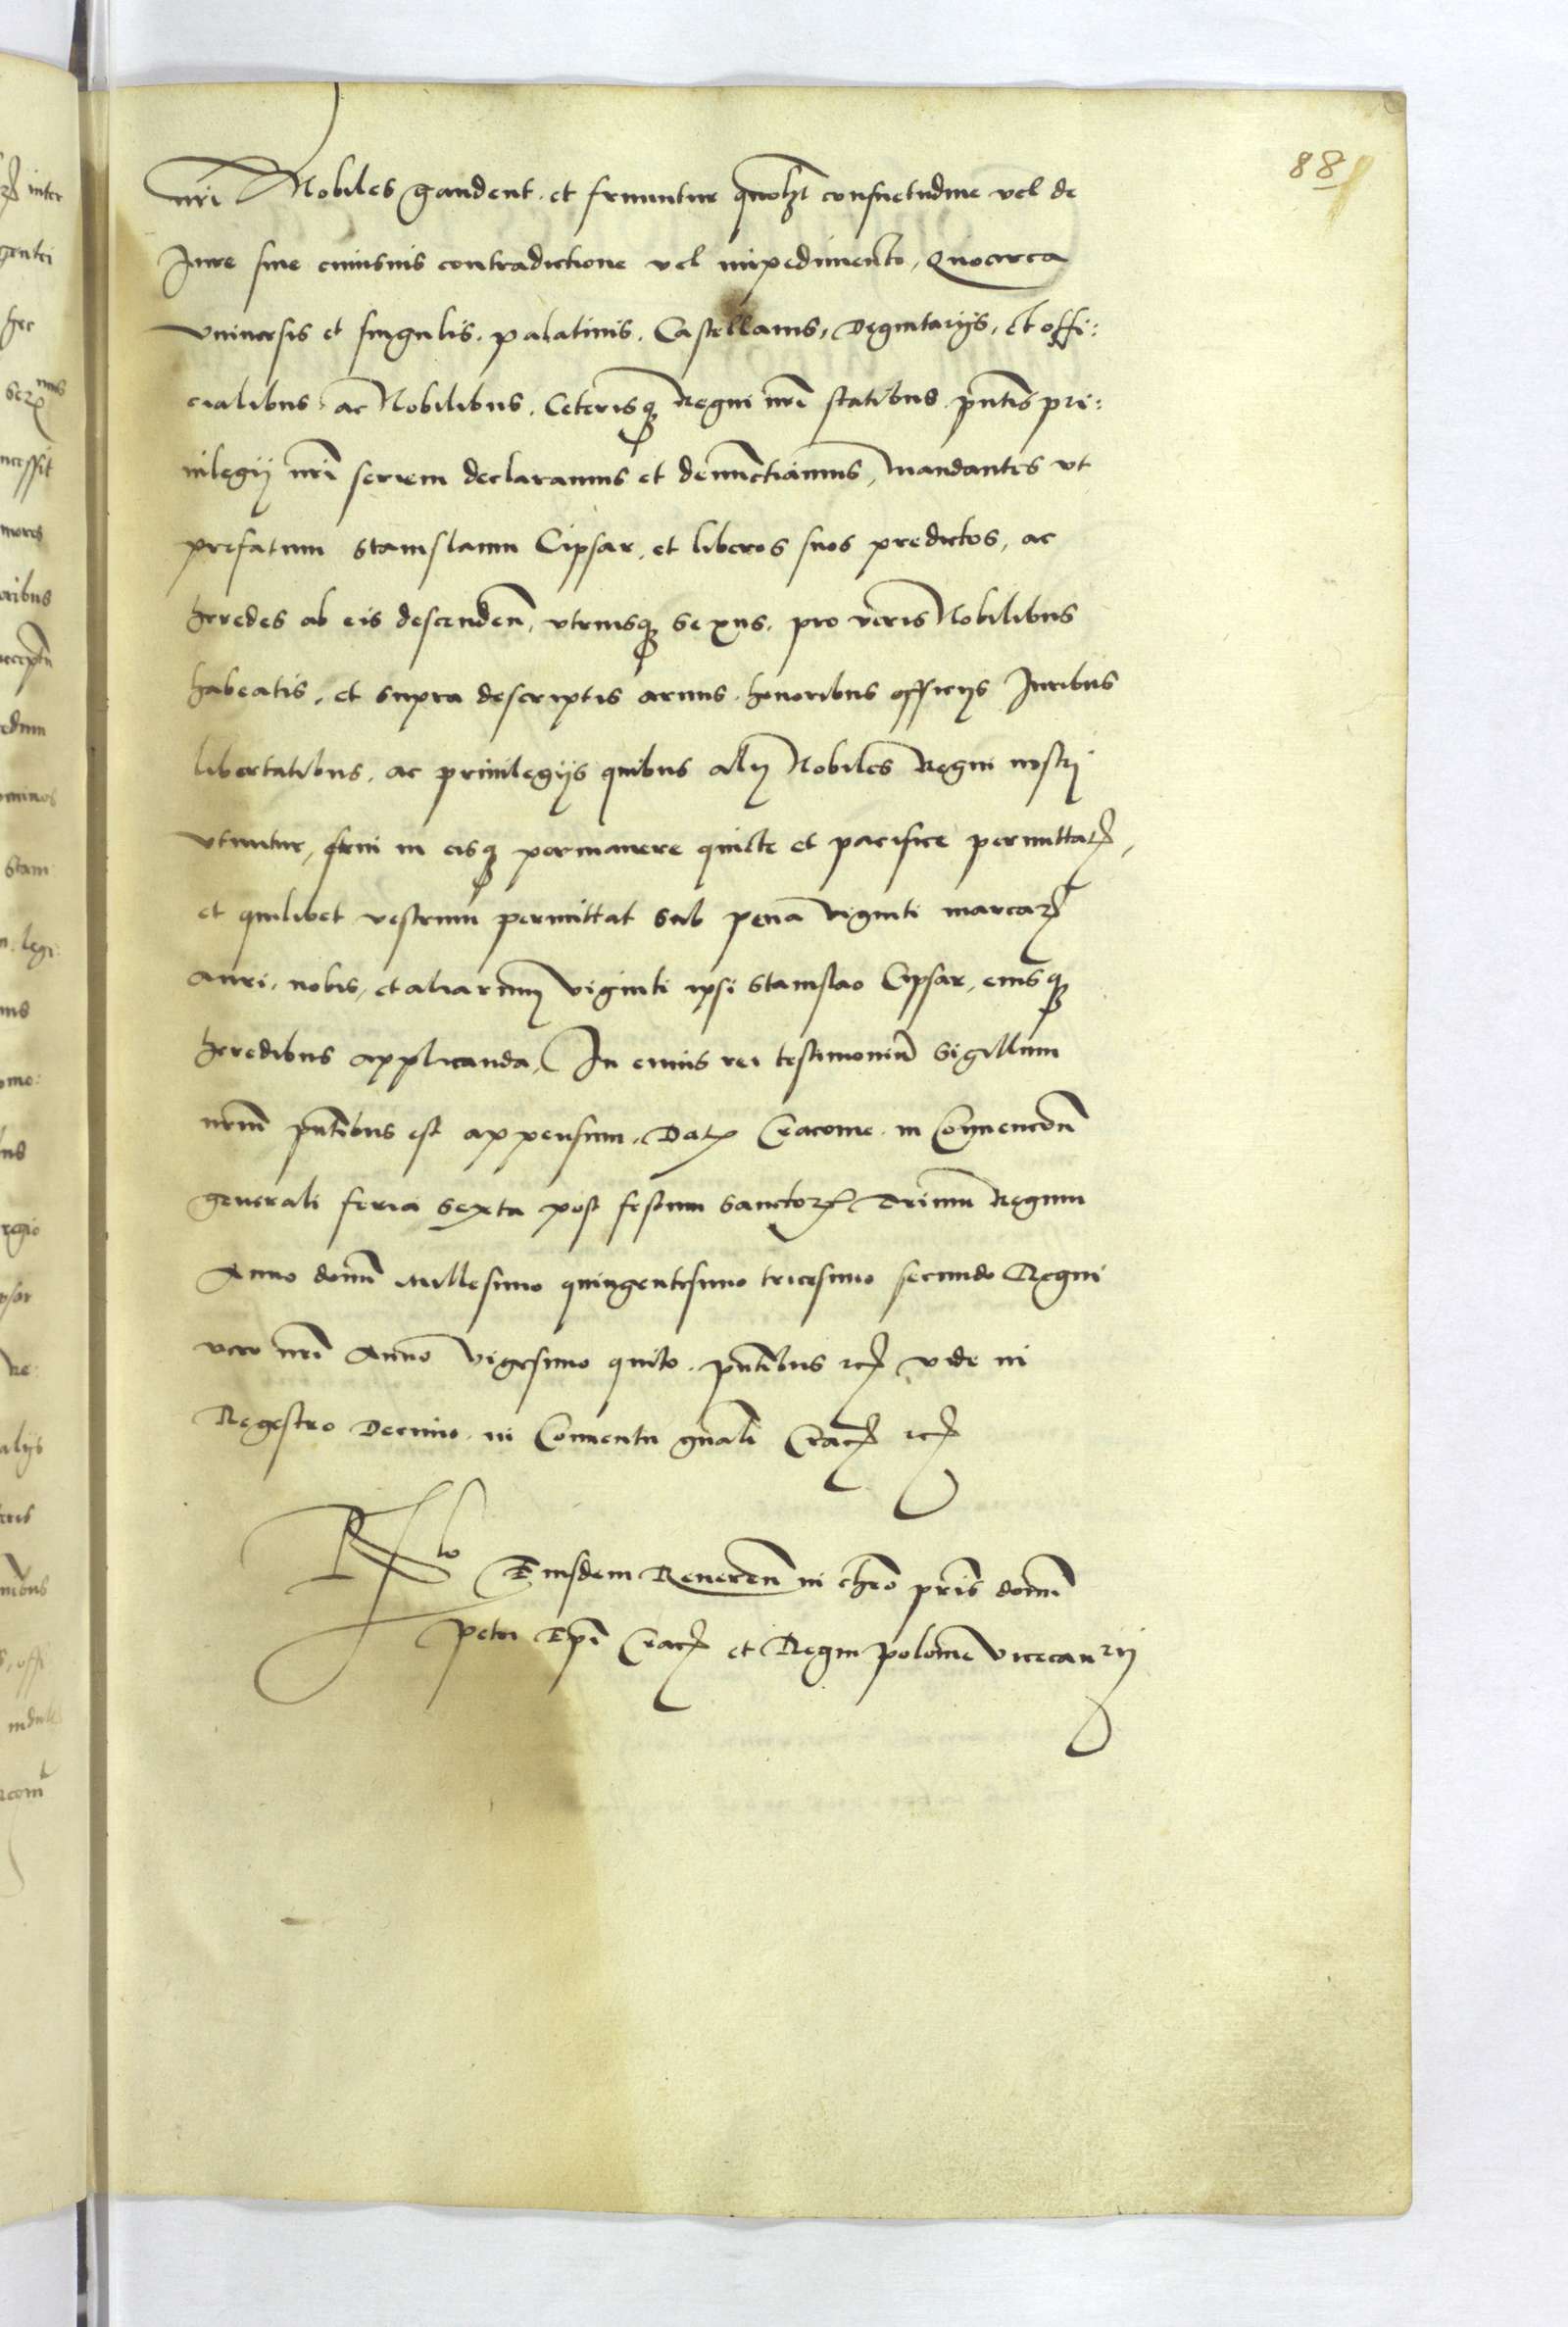 88
nri Nobiles gaudent. et fruuntur quolibet consuetudine vel de
Iure sine cuiusuis contradictione vel impedimento, Quocirca
vniuersis et singulis. palatinis. Castellanis, Dignitarijs, et offi:
cialibus, ac Nobilibus. Ceterisq Regni nri statibus pntis pri:
uilegij nri seriem declaramus et denunctiamus, mandantes vt
prefatum Stanislaum Cipsar, et liberos suos predictos, ac
heredes ab eis descenden, vtriusq sexus. pro veris Nobilibus
habeatis, et supra descriptis armis. honoribus officijs Iuribus
libertatibus, ac priuilegijs quibus alij Nobiles Regni nostrj
vtuntur, frui in eisq permanere quiete et pacifice permittat,
et quilibet vestrum permittat sub pena viginti marcar
auri. nobis, et aliarum viginti ipsi Stanislao Cipsar, eiusq
heredibus applicanda, In cuius rei testimoniu Sigillum
nrum pntibus est appensum. Dat Cracouie. in Conuencion
generali feria sexta post festum sanctor Trium Regum
Anno domi Millesimo quingentesimo tricesimo secundo Regni
vero nri Anno Vigesimo quito. pntibus etc vide in
Regestro Decimo. in Conuentu gnali Crac etc
Rlo Eiusdem Reueren in chro pris domi
petri Epi Crac et Regni polonie vicecanrij